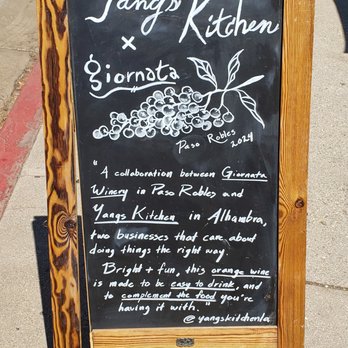 Yangs
Kitchen
x
giornata
Paso Robles
2024
"A collaboration between Giornata
Winery in Paso Robles and
Yangs Kitchen in Alhambra,
two businesses that care about
doing things the right way.
Bright + fun, this orange wine
is made to be easy to drink, and
to complement the food you're
having it with."
@yangskitchenla